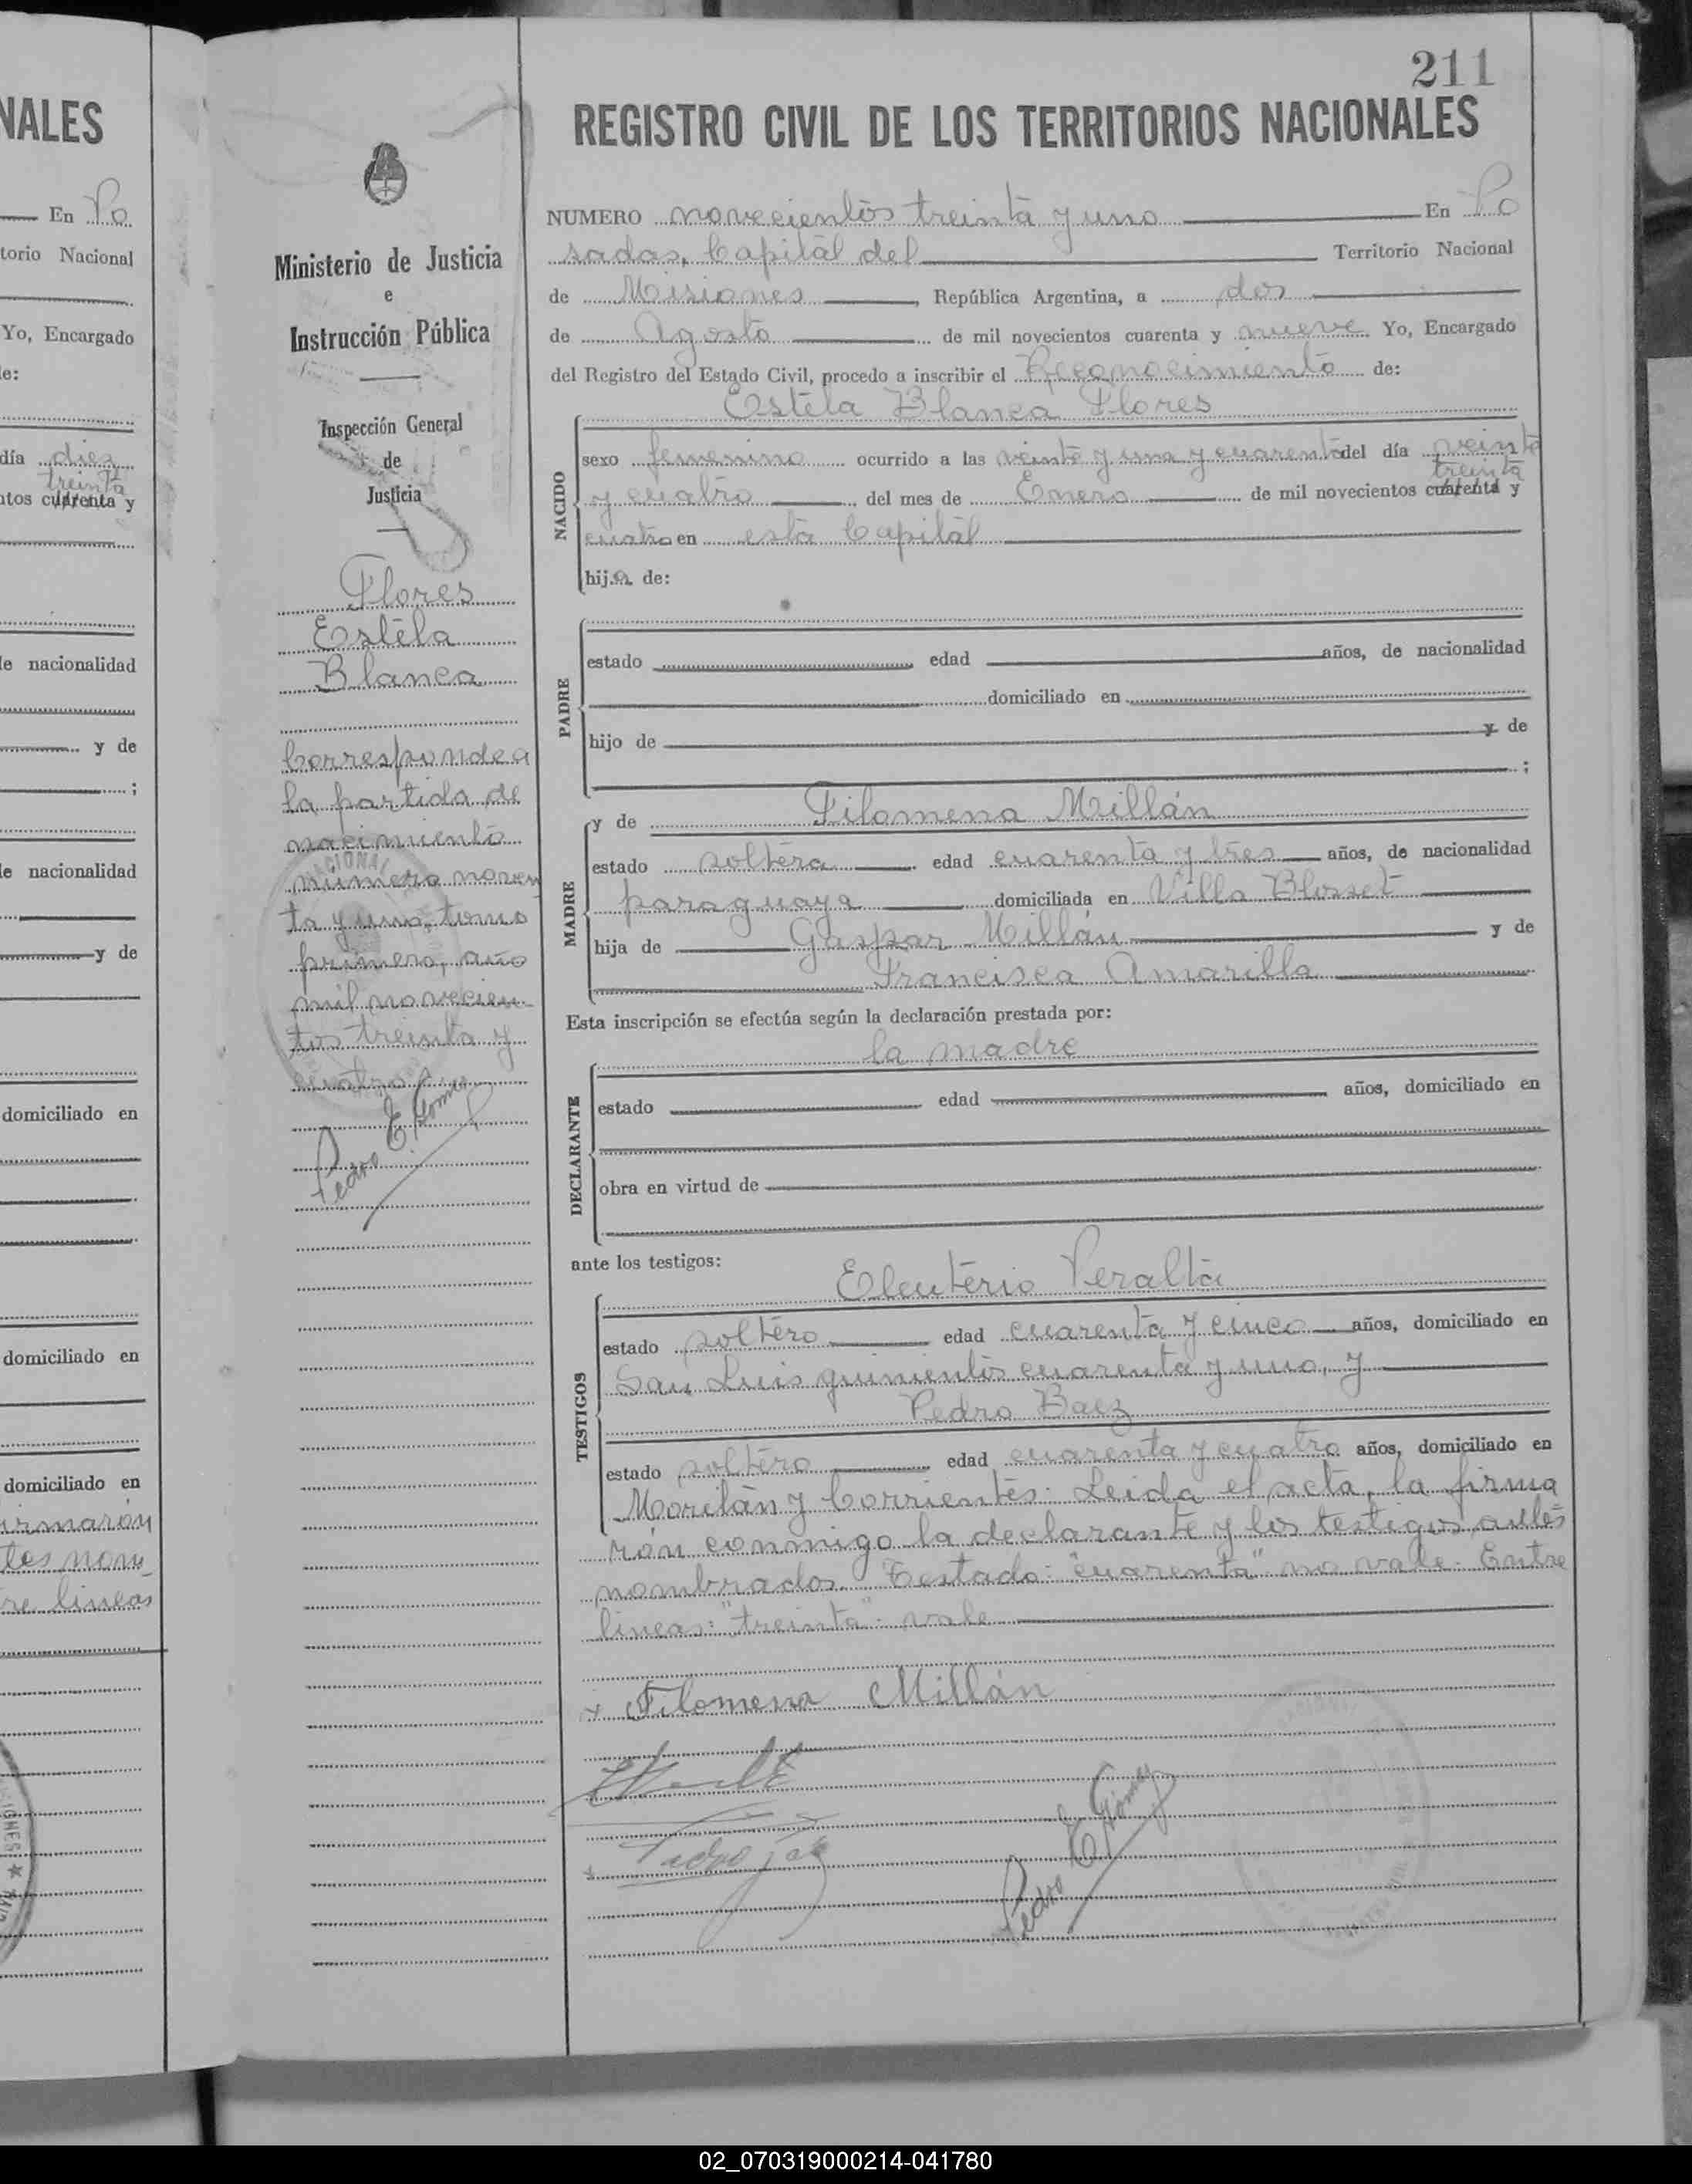 NALES
En Po
torio Nacional
Yo, Encargado
de:
día diez
treinta
ntos cuarenta y
de nacionalidad
y de
;
de nacionalidad
y de
domiciliado en
domiciliado en
domiciliado en
irmarón
tes nom
re lineas
Ministerio de Justicia
e
Instrucción Pública
Inspección General
de
Justicia
Flores
Estela
Blanca
Corresponde a
la partida de
nacimiento
número noven
ta y uno, tomo
primero, año
mil novecien-
tos treinta y
cuatro
Pedro E. Gomez
211
REGISTRO CIVIL DE LOS TERRITORIOS NACIONALES
NUMERO novecientos treinta y uno En Po
sadas, Capital del Territorio Nacional
de Misiones, República Argentina, a dos
de Agosto de mil novecientos cuarenta y nueve Yo, Encargado
del Registro del Estado Civil, procedo a inscribir el Reconocimiento de:
Estela Blanca Flores
NACIDO
sexo femenino ocurrido a las veinte y una y cuarenta del día veinte
treinta
y cuatro, del mes de Enero de mil novecientos cuarenta y
cuatro en esta Capital
hija de:
PADRE
estado edad años, de nacionalidad
domiciliado en
hijo de y de
;
MADRE
y de Filomena Millán
estado soltera edad cuarenta y tres años, de nacionalidad
paraguaya domiciliada en Villa Blosset
hija de Gaspar Millán y de
Francisca Amarilla
Esta inscripción se efectúa según la declaración prestada por:
la madre
DECLARANTE
estado edad años, domiciliado en
obra en virtud de
ante los testigos:
TESTIGOS
Eleuterio Peralta
estado soltero edad cuarenta y cinco años, domiciliado en
San Luis quinientos cuarenta y uno, y
Pedro Baez
estado soltero edad cuarenta y cuatro años, domiciliado en
Morelan y Corrientes: Leida el acta, la firma
rón conmigo la declarante y los testigos antes
nombrados. Testado: "cuarenta" no vale. Entre
lineas: "treinta": vale
x Filomena Millán
Pedro E. Gomez
02_070319000214-041780